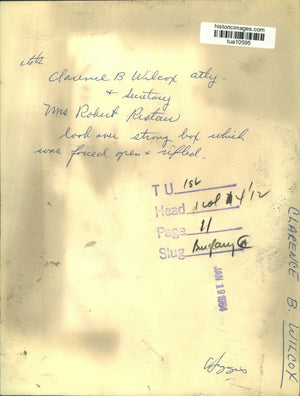 historicimages.com
tua10595
Clarence B Wilcox atty.
& secretary
Mrs Robert Ristau
look over strong box which
was forced open & rifled.
TU 1st
Head 1 col
Page 11
Slug Burglary
JAN 19 1964
CLARENCE B. WILCOX